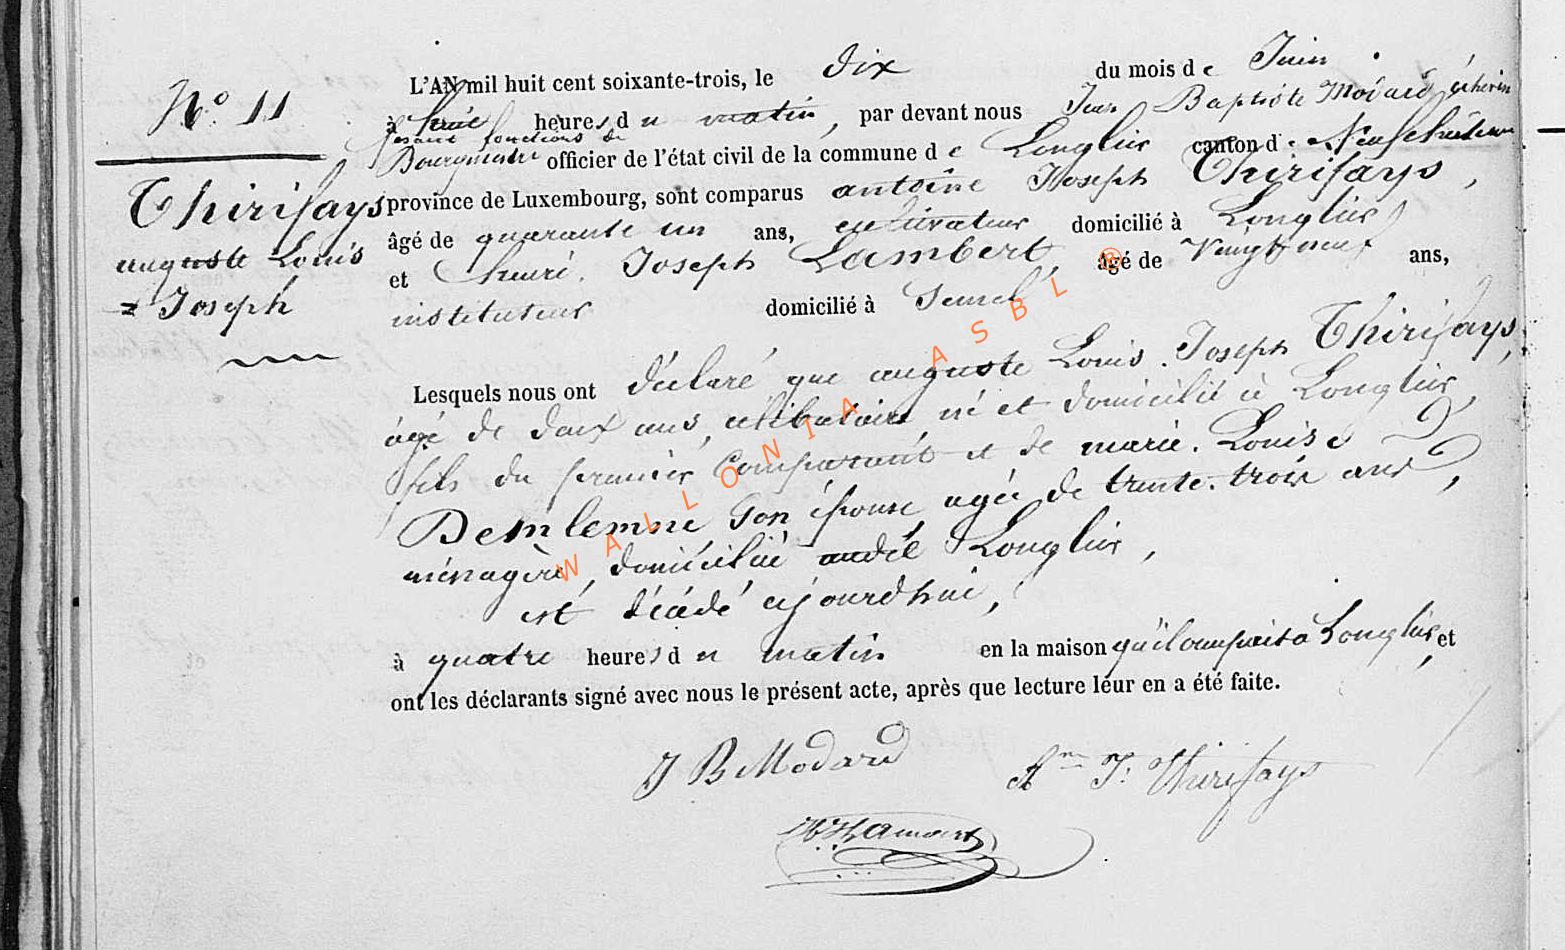 N° 11
Thirifays
auguste Louis
Joseph
L'AN mil huit cent soixante-trois, le dix du mois de Juin
à huit heures du matin, par devant nous Jean Baptiste Modard échevin
fesant fonctions de
Bourgmestre officier de l'état civil de la commune de Longlier canton de Neufchâteau
province de Luxembourg, sont comparus antoine Joseph Thirifays,
âgé de quarante un ans, cultivateur domicilié à Longlier
et henri Joseph Lambert, âgé de Vingt neuf ans,
instituteur domicilié à Semel
Lesquels nous ont déclaré que auguste Louis Joseph Thirifays,
âgé de deux ans, célibataire, né et domicilié à Longlier,
fils du premier Comparant et de marie Louise
Demlenne, son épouse, agée de trente-trois ans,
ménagère, domiciliée audit Longlier,
est décédé ajourdhui,
à quatre heures du matin en la maison qu'il occupait à Longlier, et
ont les déclarants signé avec nous le présent acte, après que lecture leur en a été faite.
J B Modard
Ane J. Thirifays
WALLONIA ASBL ®